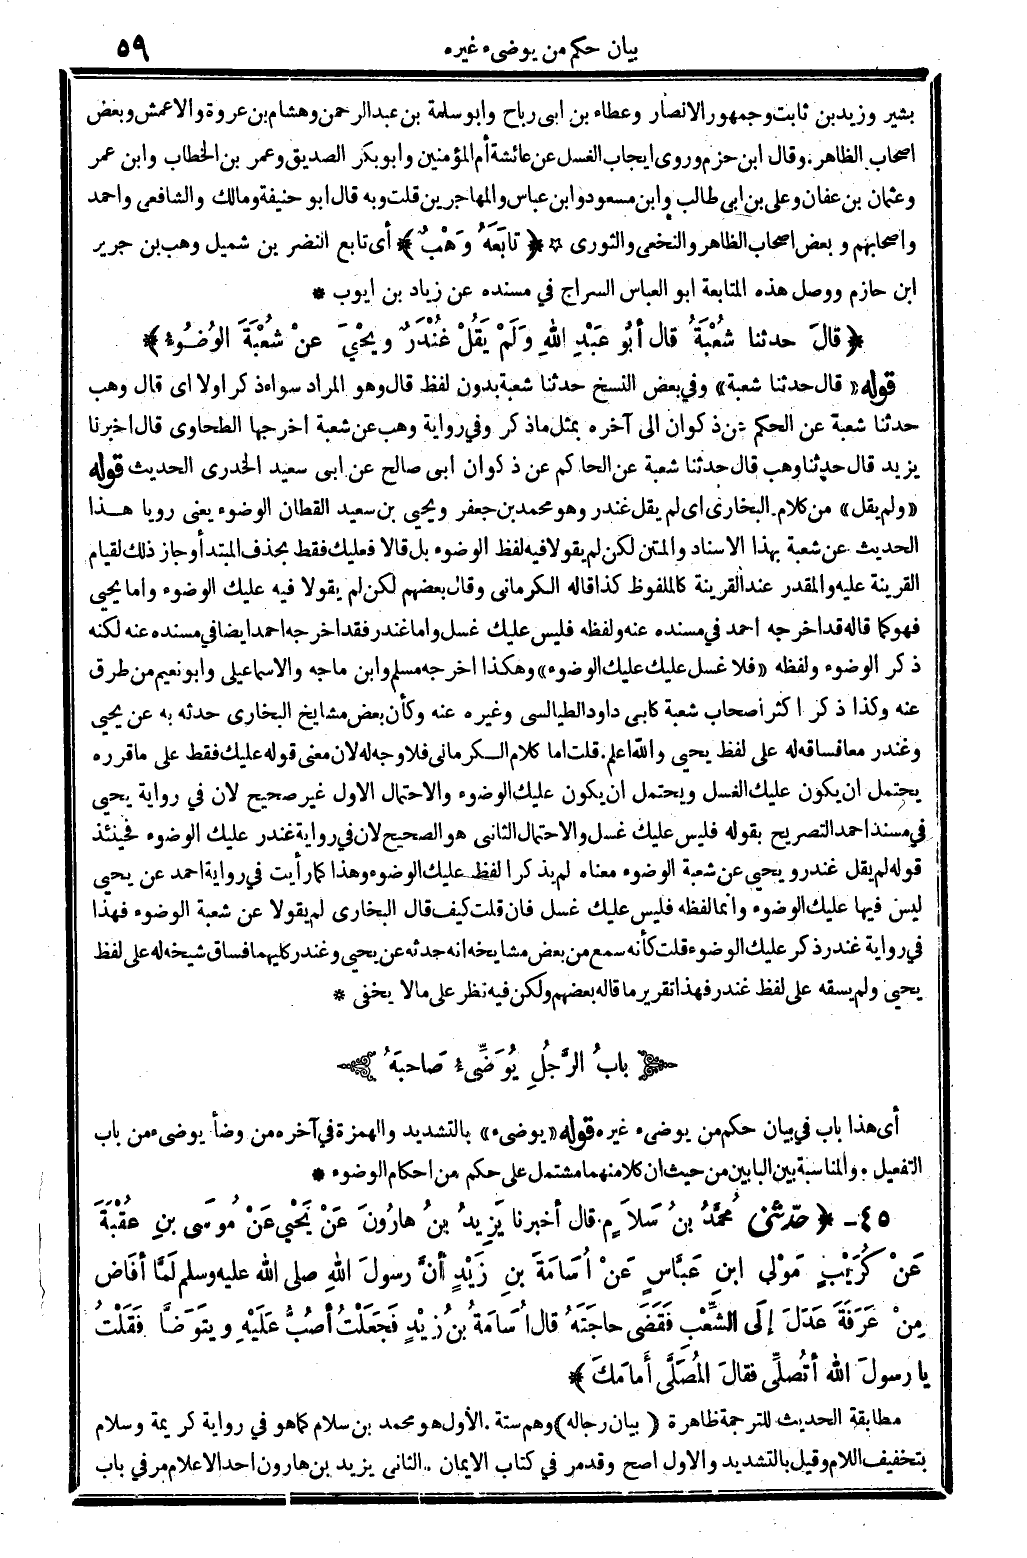 بيان حكم من يوضىء غيره ٥٩
بشير وزيد بن ثابت وجمهور الانصار وعطاء بن ابى رباح وابو سلمة بن عبد الرحمن وهشام بن عروة والاعمش وبعض
اصحاب الظاهر. وقال ابن حزم وروى ايجاب الغسل عن عائشة أم المؤمنين وابو بكر الصديق وعمر بن الخطاب وابن عمر
وعثمان بن عفان وعلى بن ابى طالب وابن مسعود وابن عباس والمهاجرين قلت وبه قال ابو حنيفة ومالك والشافعى واحمد
واصحابهم وبعض اصحاب الظاهر والنخعى والثورى ☆ ﴿ تَابَعَهُ وَهْبٌ ﴾ أى تابع النضر بن شميل وهب بن جرير
ابن حازم ووصل هذه المتابعة ابو العباس السراج في مسنده عن زياد بن ايوب *
﴿ قَالَ حدثنا شُعْبَةُ قال أبُو عَبْدِ اللهِ وَلَمْ يَقُلْ غُنْدَرٌ ويَحْيَ عنْ شُعْبَةَ الوُضُوءُ ﴾
قوله « قال حدثنا شعبة » وفي بعض النسخ حدثنا شعبة بدون لفظ قال وهو المراد سواء ذكر اولا اى قال وهب
حدثنا شعبة عن الحكم عن ذكوان الى آخره بمثل ما ذكر وفي رواية وهب عن شعبة أخرجها الطحاوى قال اخبرنا
يزيد قال حدثنا وهب قال حدثنا شعبة عن الحاكم عن ذكوان ابى صالح عن ابى سعيد الخدرى الحديث قوله
« ولم يقل » من كلام البخارى اى لم يقل غندر وهو محمد بن جعفر ويحيي بن سعيد القطان الوضوء يعنى رويا هذا
الحديث عن شعبة بهذا الاسناد والمتن لكن لم يقولا فيه لفظ الوضوء بل قالا فعليك فقط بحذف المبتدأ وجاز ذلك لقيام
القرينة عليه والمقدر عند القرينة كالملفوظ كذا قاله الكرمانى وقال بعضهم لكن لم يقولا فيه عليك الوضوء واما يحيي
فهو كما قاله قد اخرجه احمد في مسنده عنه ولفظه فليس عليك غسل واما غندر فقد اخرجه احمد ايضا في مسنده عنه لكنه
ذكر الوضوء ولفظه « فلا غسل عليك عليك الوضوء » وهكذا اخرجه مسلم وابن ماجه والاسماعيلى وابو نعيم من طرق
عنه وكذا ذكر اكثر أصحاب شعبة كابى داود الطيالسى وغيره عنه وكأن بعض مشايخ البخارى حدثه به عن يحيي
وغندر معا فساقه له على لفظ يحيى والله اعلم. قلت اما كلام الكرمانى فلا وجه له لان معنى قوله عليك فقط على ما قرره
يحتمل ان يكون عليك الغسل ويحتمل ان يكون عليك الوضوء والاحتمال الاول غير صحيح لان في رواية يحيي
في مسند احمد التصريح بقوله فليس عليك غسل والاحتمال الثانى هو الصحيح لان في رواية غندر عليك الوضوء فحينئذ
قوله لم يقل غندر ويحيى عن شعبة الوضوء معناه لم يذكرا لفظ عليك الوضوء وهذا كما رأيت في رواية احمد عن يحيي
ليس فيها عليك الوضوء وانما لفظه فليس عليك غسل فان قلت كيف قال البخارى لم يقولا عن شعبة الوضوء فهذا
في رواية غندر ذكر عليك الوضوء قلت كأنه سمع من بعض مشايخه انه حدثه عن يحيي وغندر كليهما فساق شيخه له على لفظ
يحيي ولم يسقه على لفظ غندر فهذا تقرير ما قاله بعضهم ولكن فيه نظر على مالا يخفى *
بابُ الرَّجُلِ يُوَضِّىءُ صَاحِبَهُ
أى هذا باب في بيان حكم من يوضىء غيره قوله « يوضىء » بالتشديد والهمزة في آخره من وضأ يوضىء من باب
التفعيل. والمناسبة بين البابين من حيث ان كلا منهما مشتمل على حكم من احكام الوضوء *
٤٥ - ﴿ حدّثنى مُحَمَّدُ بنُ سَلاَمٍ قال أخبرنا يَزِيدُ بنُ هارُونَ عَنْ يَحْيِي عَنْ مُوسَى بنِ عقْبَةَ
عَنْ كُرَيْبٍ مَوْلى ابنِ عَبَّاسٍ عَنْ أُسَامَةَ بنِ زَيْدٍ أنَّ رسولَ اللهِ صلى الله عليه وسلم لَمَّا أفَاضَ
مِنْ عَرَفَةَ عَدَلَ إلَى الشِّعْبِ فَقَضَى حاجَتَهُ قال أُسَامَةُ بنُ زَيْدٍ فَجَعَلْتُ أصُبُّ عَلَيْهِ ويتَوَضَّأ فَقَلْتُ
يا رسولَ الله أتُصلِّى فقالَ المُصَلَّى أمَامَكَ ﴾ *
مطابقة الحديث للترجمة ظاهرة ( بيان رجاله ) وهم ستة. الأول هو محمد بن سلام كما هو في رواية كريمة وسلام
بتخفيف اللام وقيل بالتشديد والاول اصح وقد مر في كتاب الايمان .. الثانى يزيد بن هارون احد الاعلام مر في باب